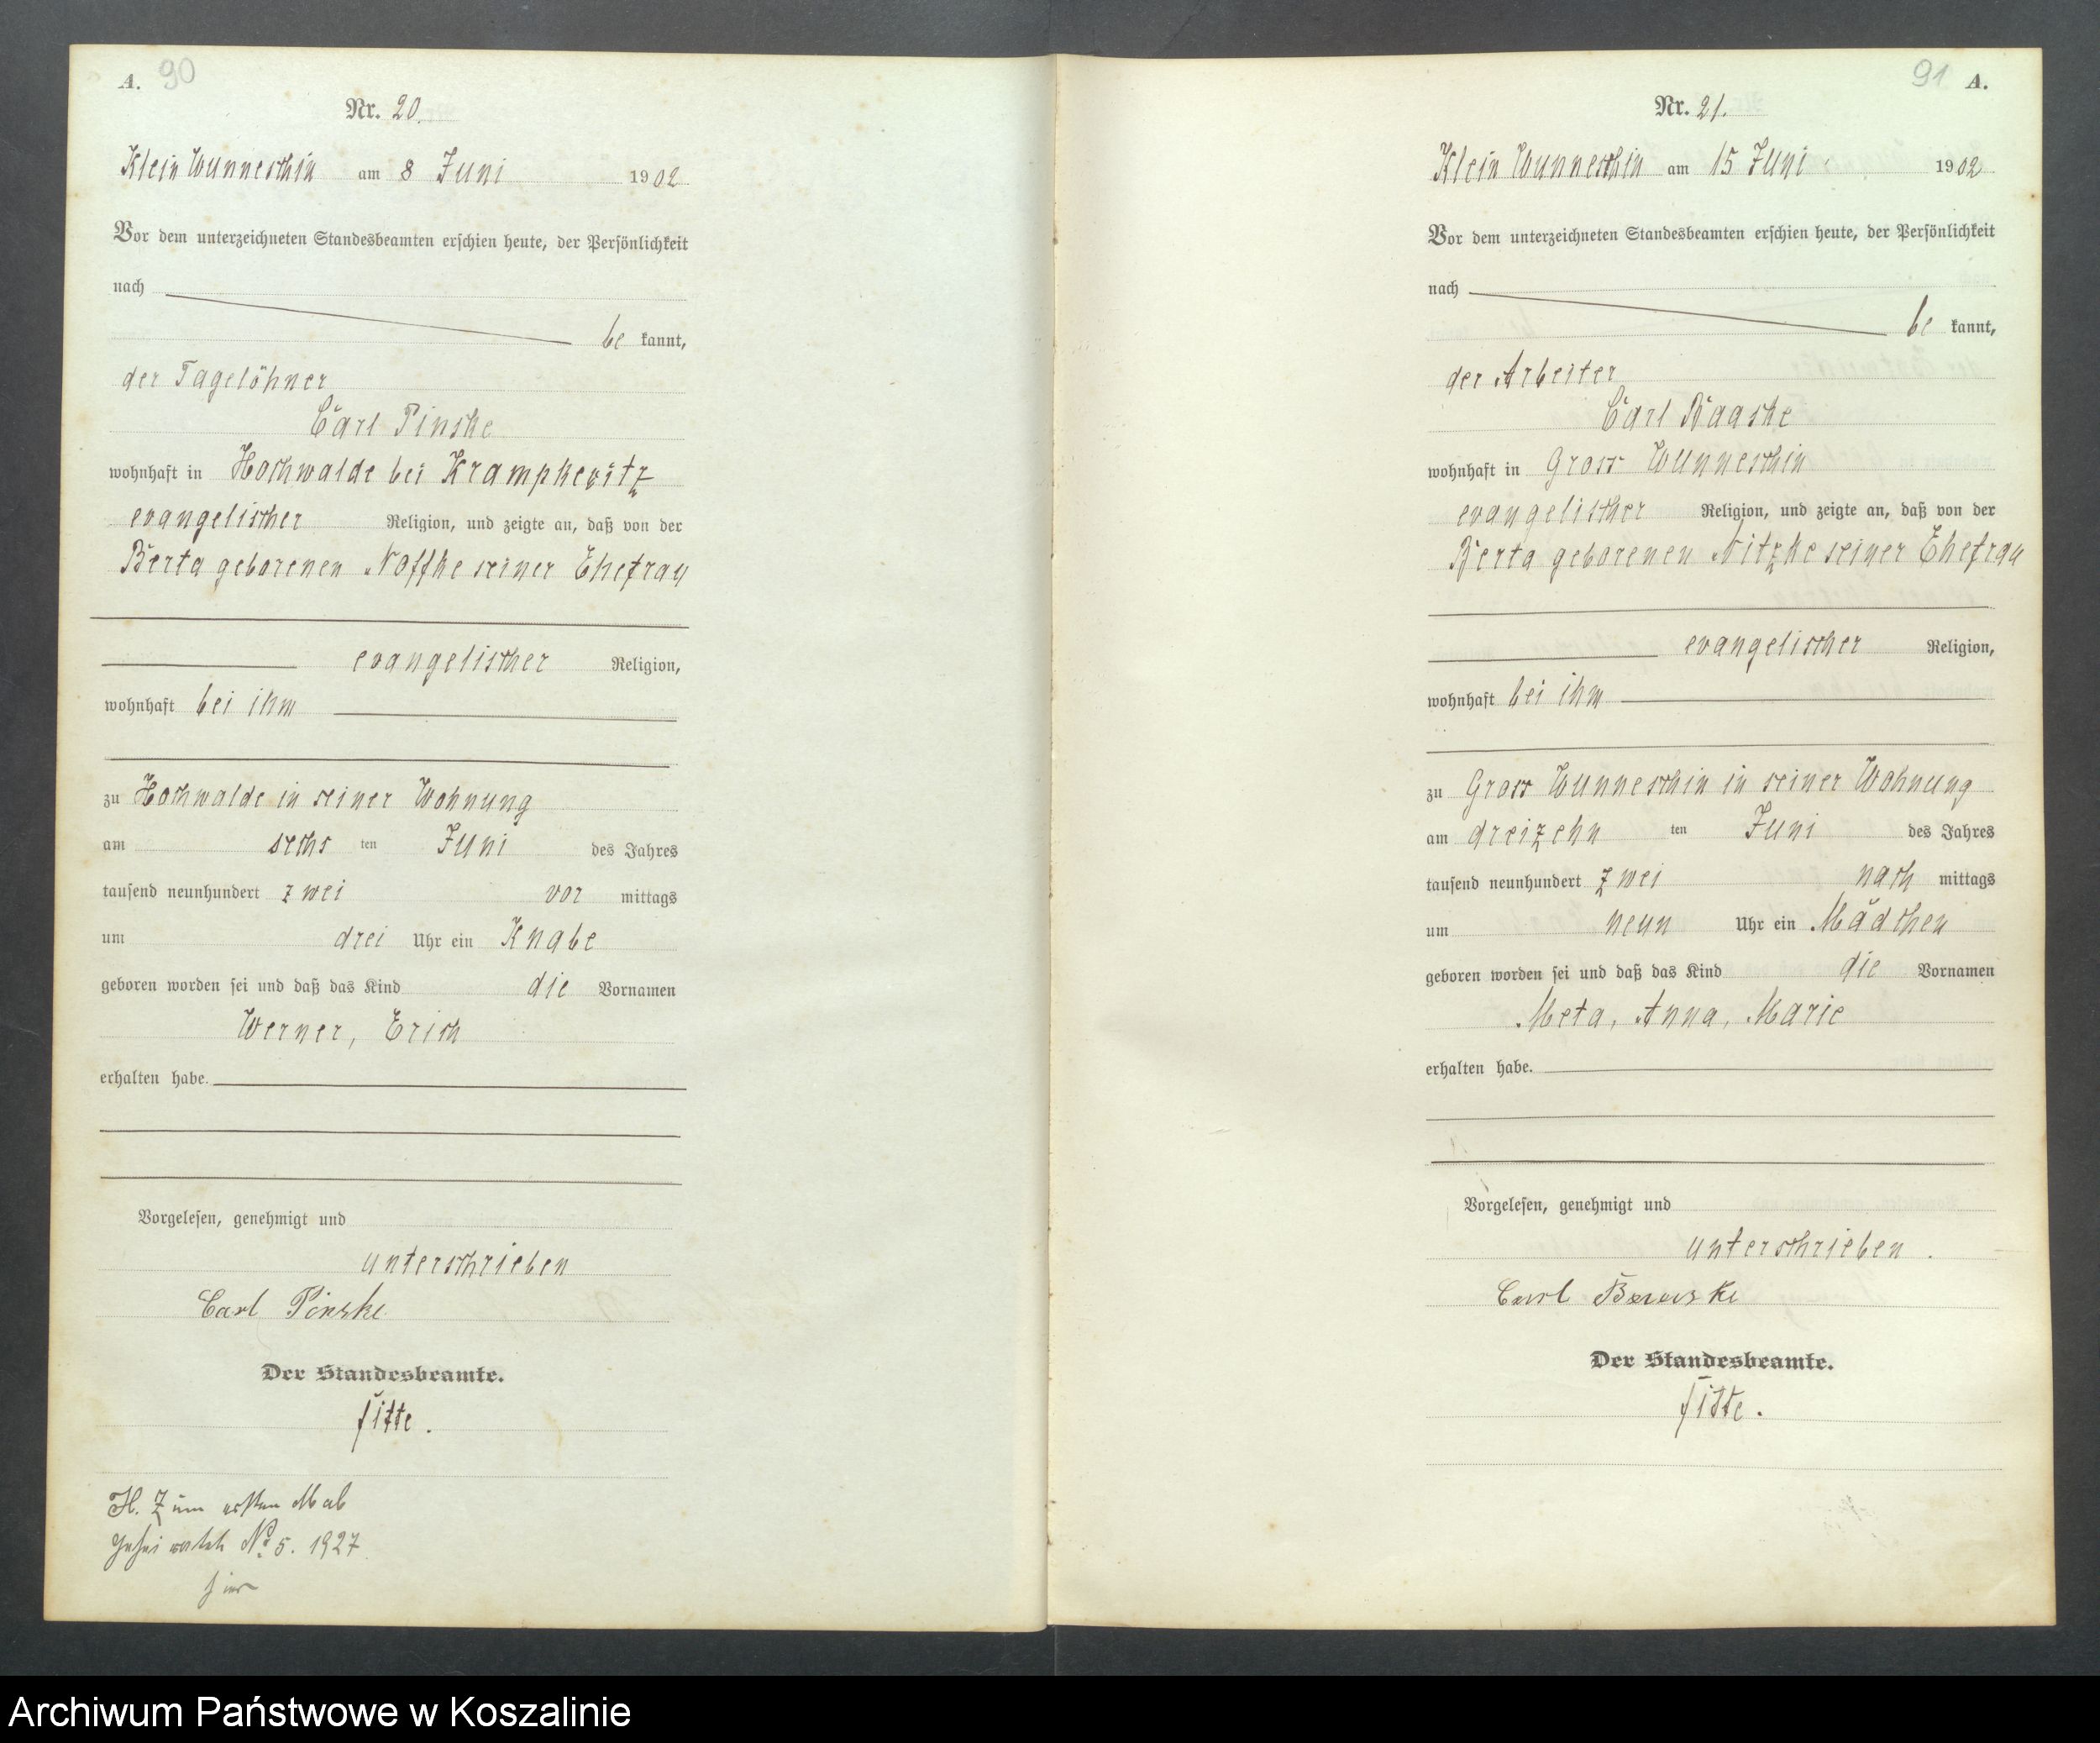 A. 90
Nr. 20.
Klein Wunneschin am 8 Juni 1902
Vor dem unterzeichneten Standesbeamten erschien heute, der Persönlichkeit
nach
be kannt,
der Tagelöhner
Carl Pinske
wohnhaft in Hochwalde bei Krampkewitz
evangelischer Religion, und zeigte an, daß von der
Berta geborenen Noffke seiner Ehefrau
evangelischer Religion,
wohnhaft bei ihm
zu Hochwalde in seiner Wohnung
am sechs ten Juni des Jahres
tausend neunhundert zwei vor mittags
um drei Uhr ein Knabe
geboren worden sei und daß das Kind die Vornamen
Werner, Erich
erhalten habe.
Vorgelesen, genehmigt und
unterschrieben
Carl Pinske
Der Standesbeamte.
Fitte.
H. Zum ersten Mal
geheiratet No 5. 1927
hier
91 A.
Nr. 21.
Klein Wunneschin am 15 Juni 1902
Vor dem unterzeichneten Standesbeamten erschien heute, der Persönlichkeit
nach
be kannt,
der Arbeiter
Carl Baaske
wohnhaft in Gross Wunneschin
evangelischer Religion, und zeigte an, daß von der
Berta geborenen Nitzke seiner Ehefrau
evangelischer Religion,
wohnhaft bei ihm
zu Gross Wunneschin in seiner Wohnung
am dreizehn ten Juni des Jahres
tausend neunhundert zwei nach mittags
um neun Uhr ein Mädchen
geboren worden sei und daß das Kind die Vornamen
Meta, Anna, Marie
erhalten habe.
Vorgelesen, genehmigt und
unterschrieben.
Carl Baaske
Der Standesbeamte.
Fitte.
Archiwum Państwowe w Koszalinie